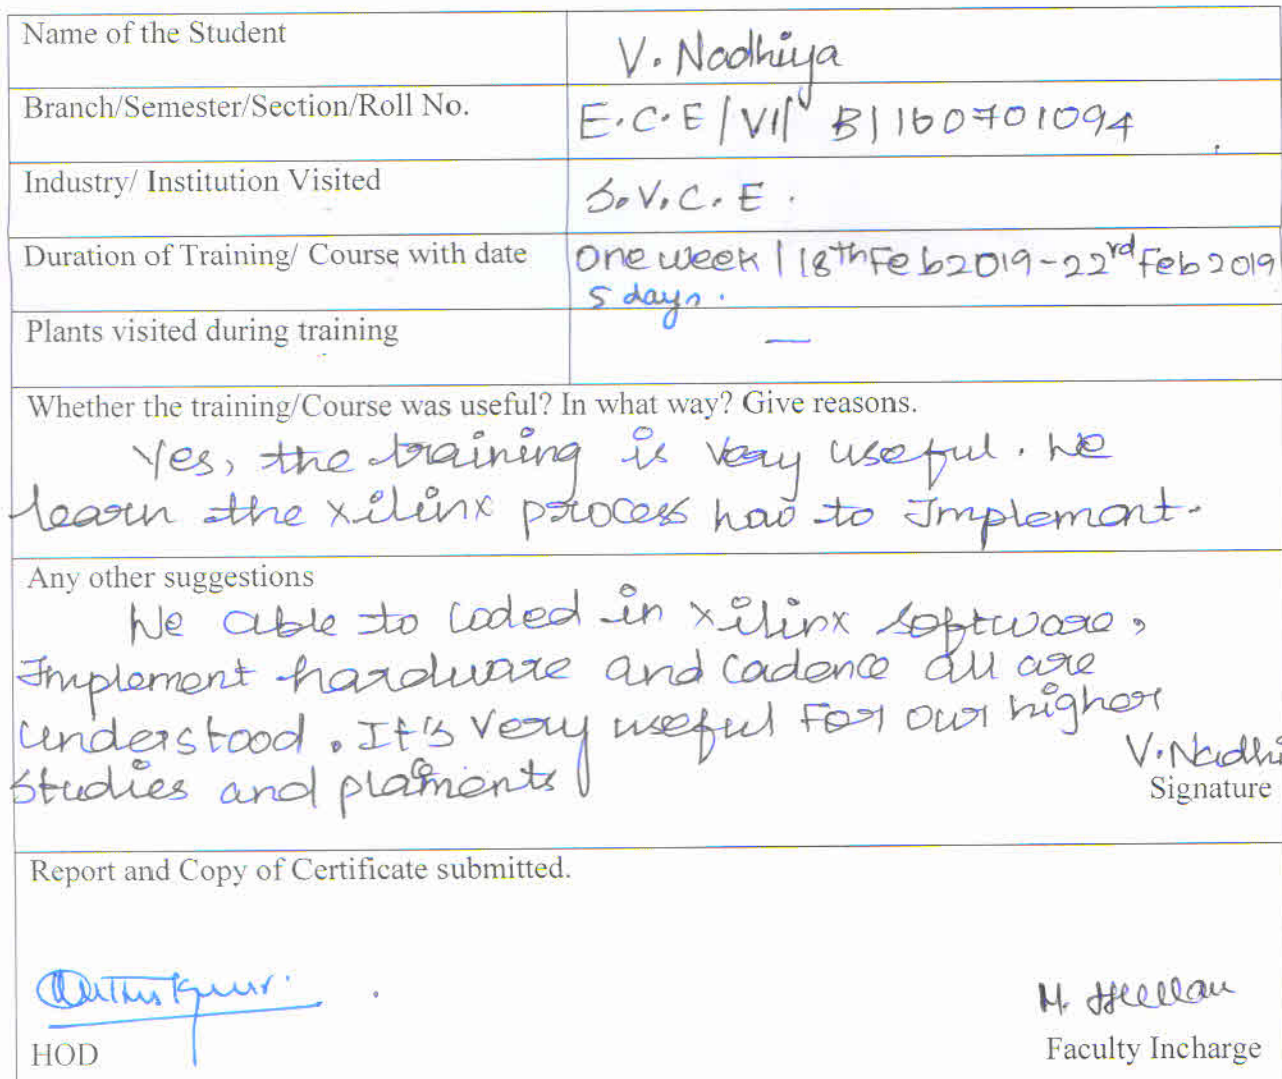 Name of the Student V. Nadhiya
Branch/Semester/Section/Roll No. E.C.E / VII / B / 160701094
Industry/ Institution Visited S.V.C.E.
Duration of Training/ Course with date One week | 18th Feb 2019 - 22rd Feb 2019
5 days.
Plants visited during training —
Whether the training/Course was useful? In what way? Give reasons.
Yes, the training is very useful. We
learn the xilinx process how to Implement.
Any other suggestions
We able to coded in xilinx software,
Implement hardware and cadence all are
understood. It's very useful For our higher
studies and placments
V. Nadhi
Signature
Report and Copy of Certificate submitted.
HOD
Faculty Incharge